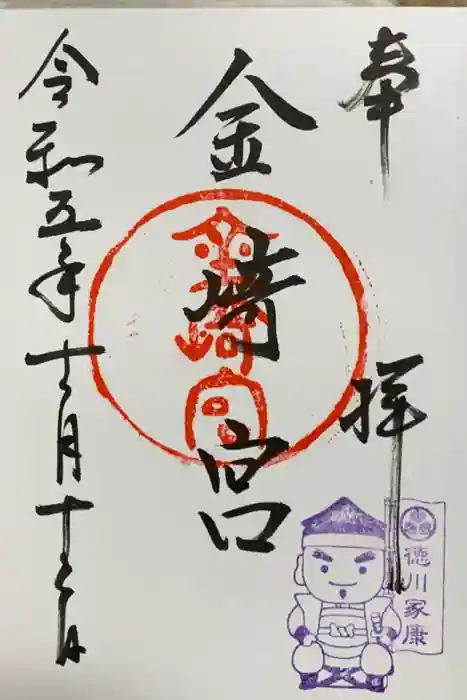 奉拝
金崎宮
金崎宮
令和五年十二月十二日
徳川家康